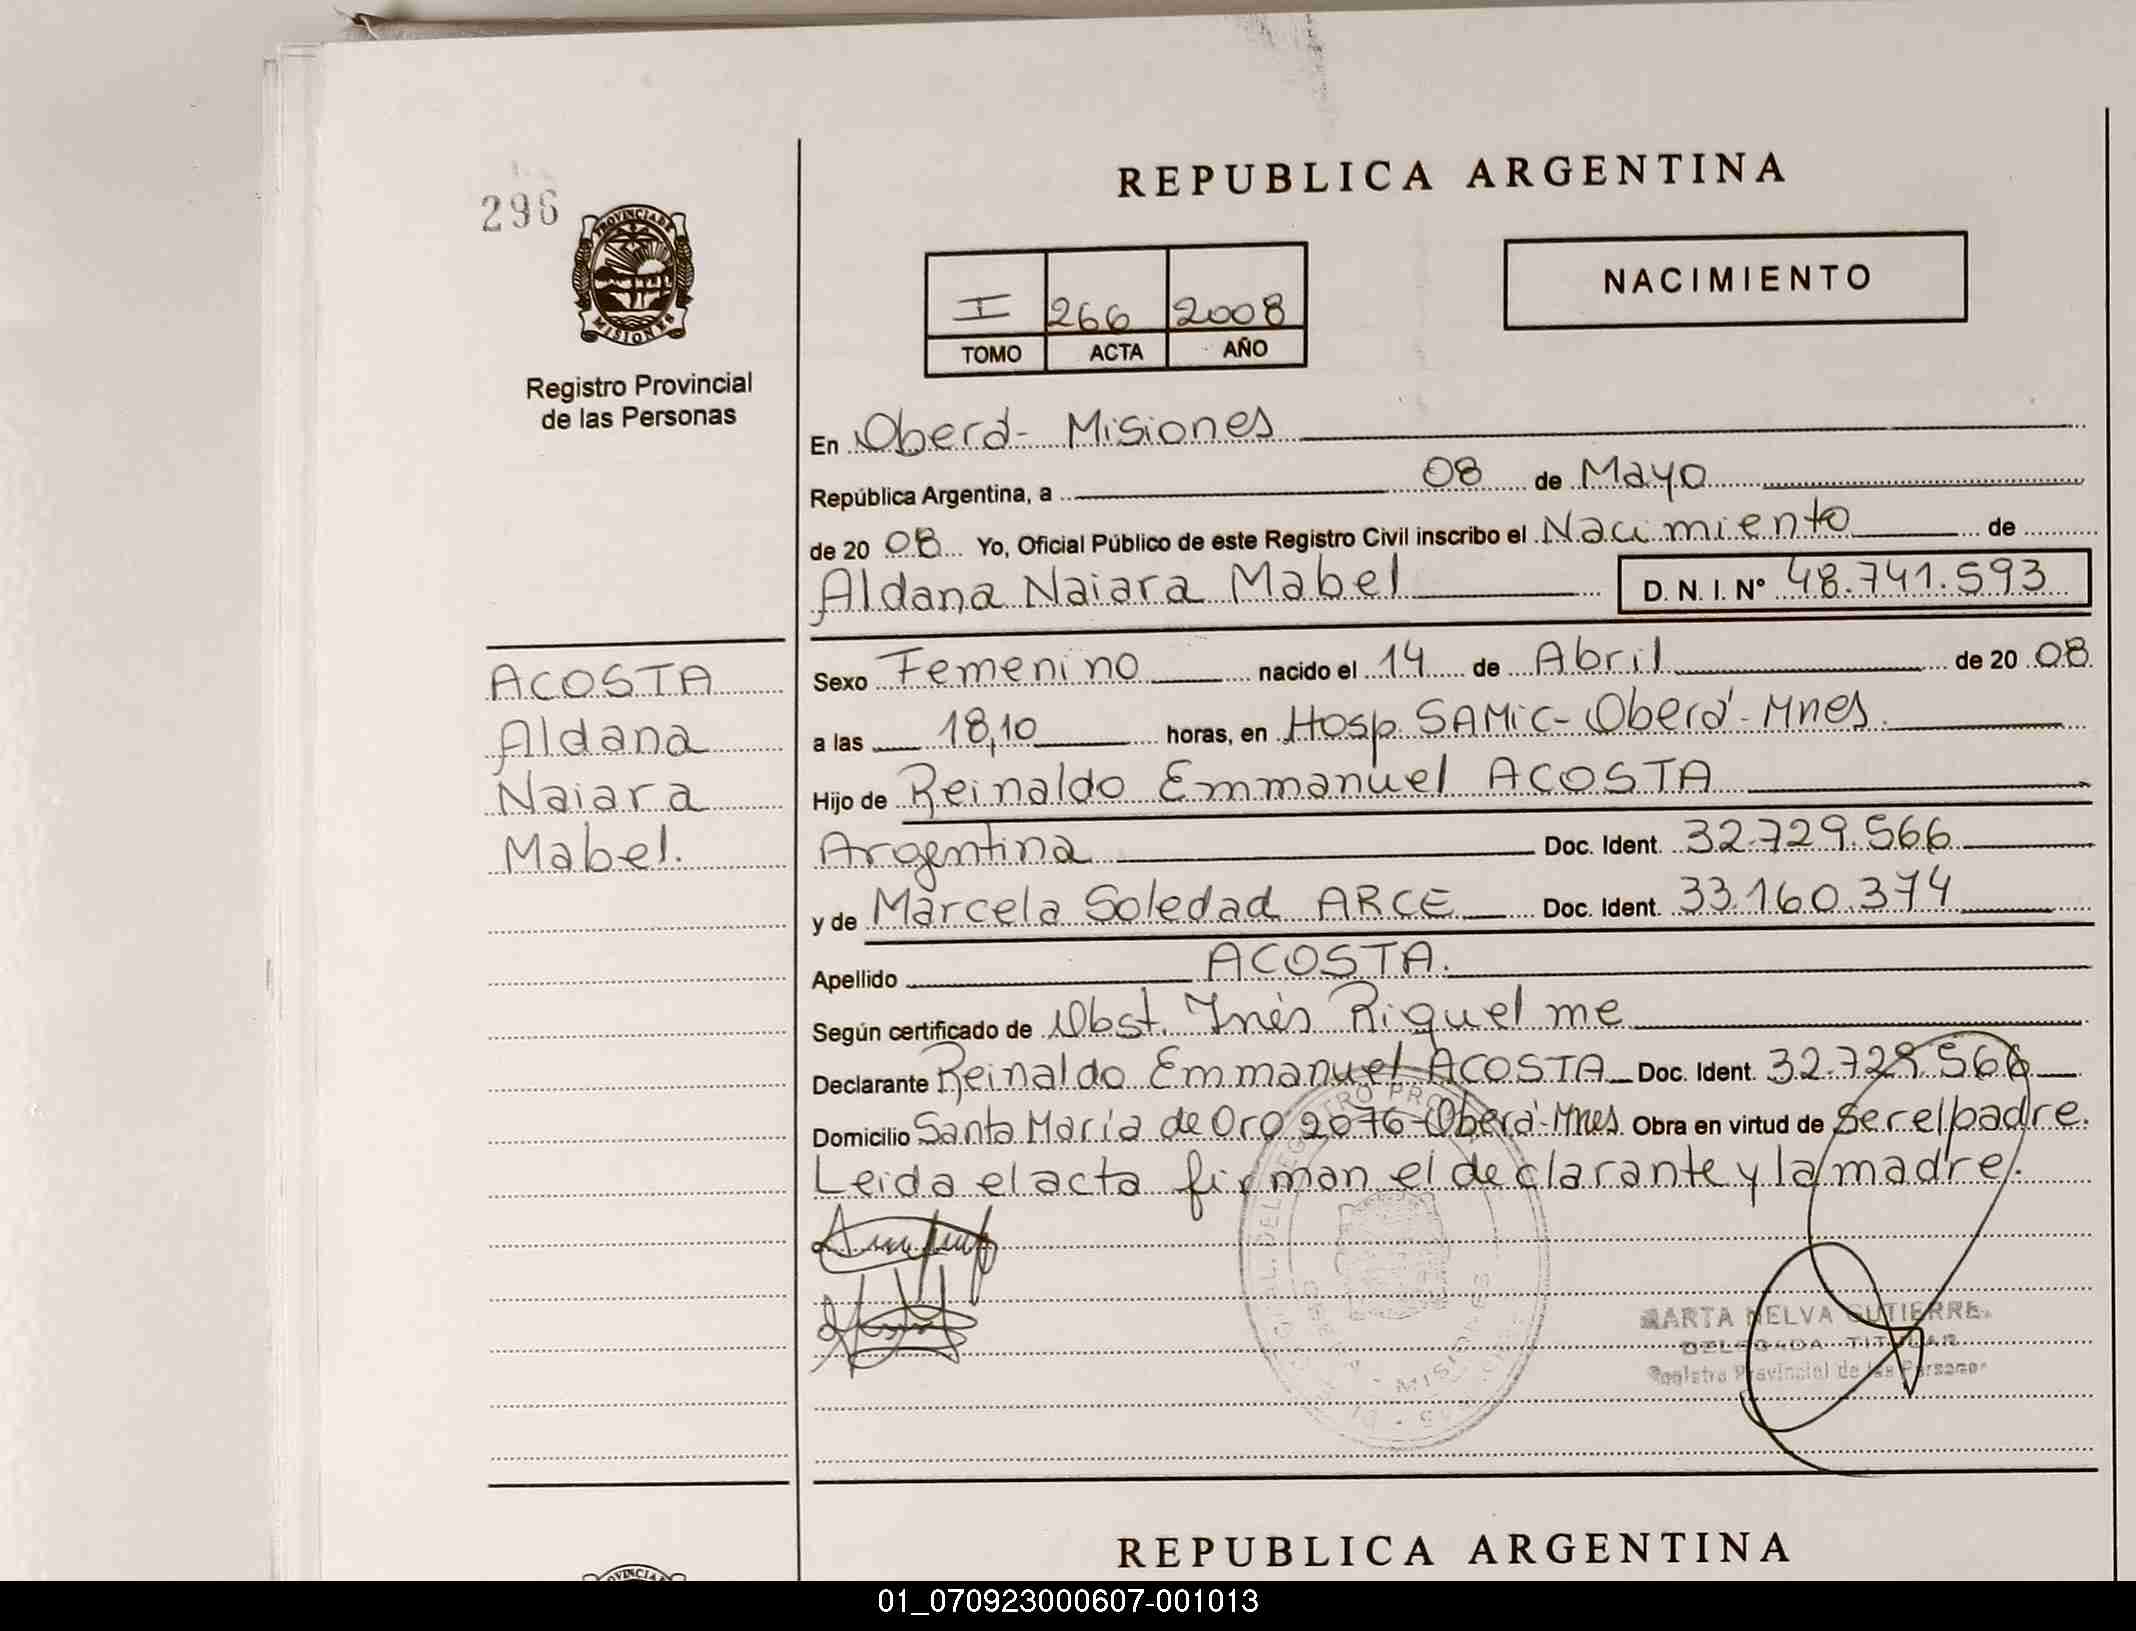 REPUBLICA ARGENTINA
296
PROVINCIA DE
MISIONES
Registro Provincial
de las Personas
NACIMIENTO
I 266 2008
TOMO ACTA AÑO
En Oberá- Misiones
República Argentina, a 08 de Mayo
de 20 08 Yo, Oficial Público de este Registro Civil inscribo el Nacimiento de
Aldana Naiara Mabel D. N. I. Nº 48.741.593
ACOSTA
Aldana
Naiara
Mabel.
Sexo Femenino nacido el 14 de Abril de 20 08
a las 18,10 horas, en Hosp. SAMIC-Oberá-Mnes.
Hijo de Reinaldo Emmanuel ACOSTA
Argentina Doc. Ident. 32.729.566
y de Marcela Soledad ARCE Doc. Ident. 33.160.374
Apellido ACOSTA.
Según certificado de Obst. Inés Riquelme
Declarante Reinaldo Emmanuel ACOSTA Doc. Ident. 32.729.566
Domicilio Santa María de Oro 2076-Oberá-Mnes Obra en virtud de Ser el padre.
Leida el acta firman el declarante y la madre.
MARTA NELVA GUTIERRE
DELEGADA TITULAR
Registro Provincial de las Personas
MISIONES
REPUBLICA ARGENTINA
01_070923000607-001013